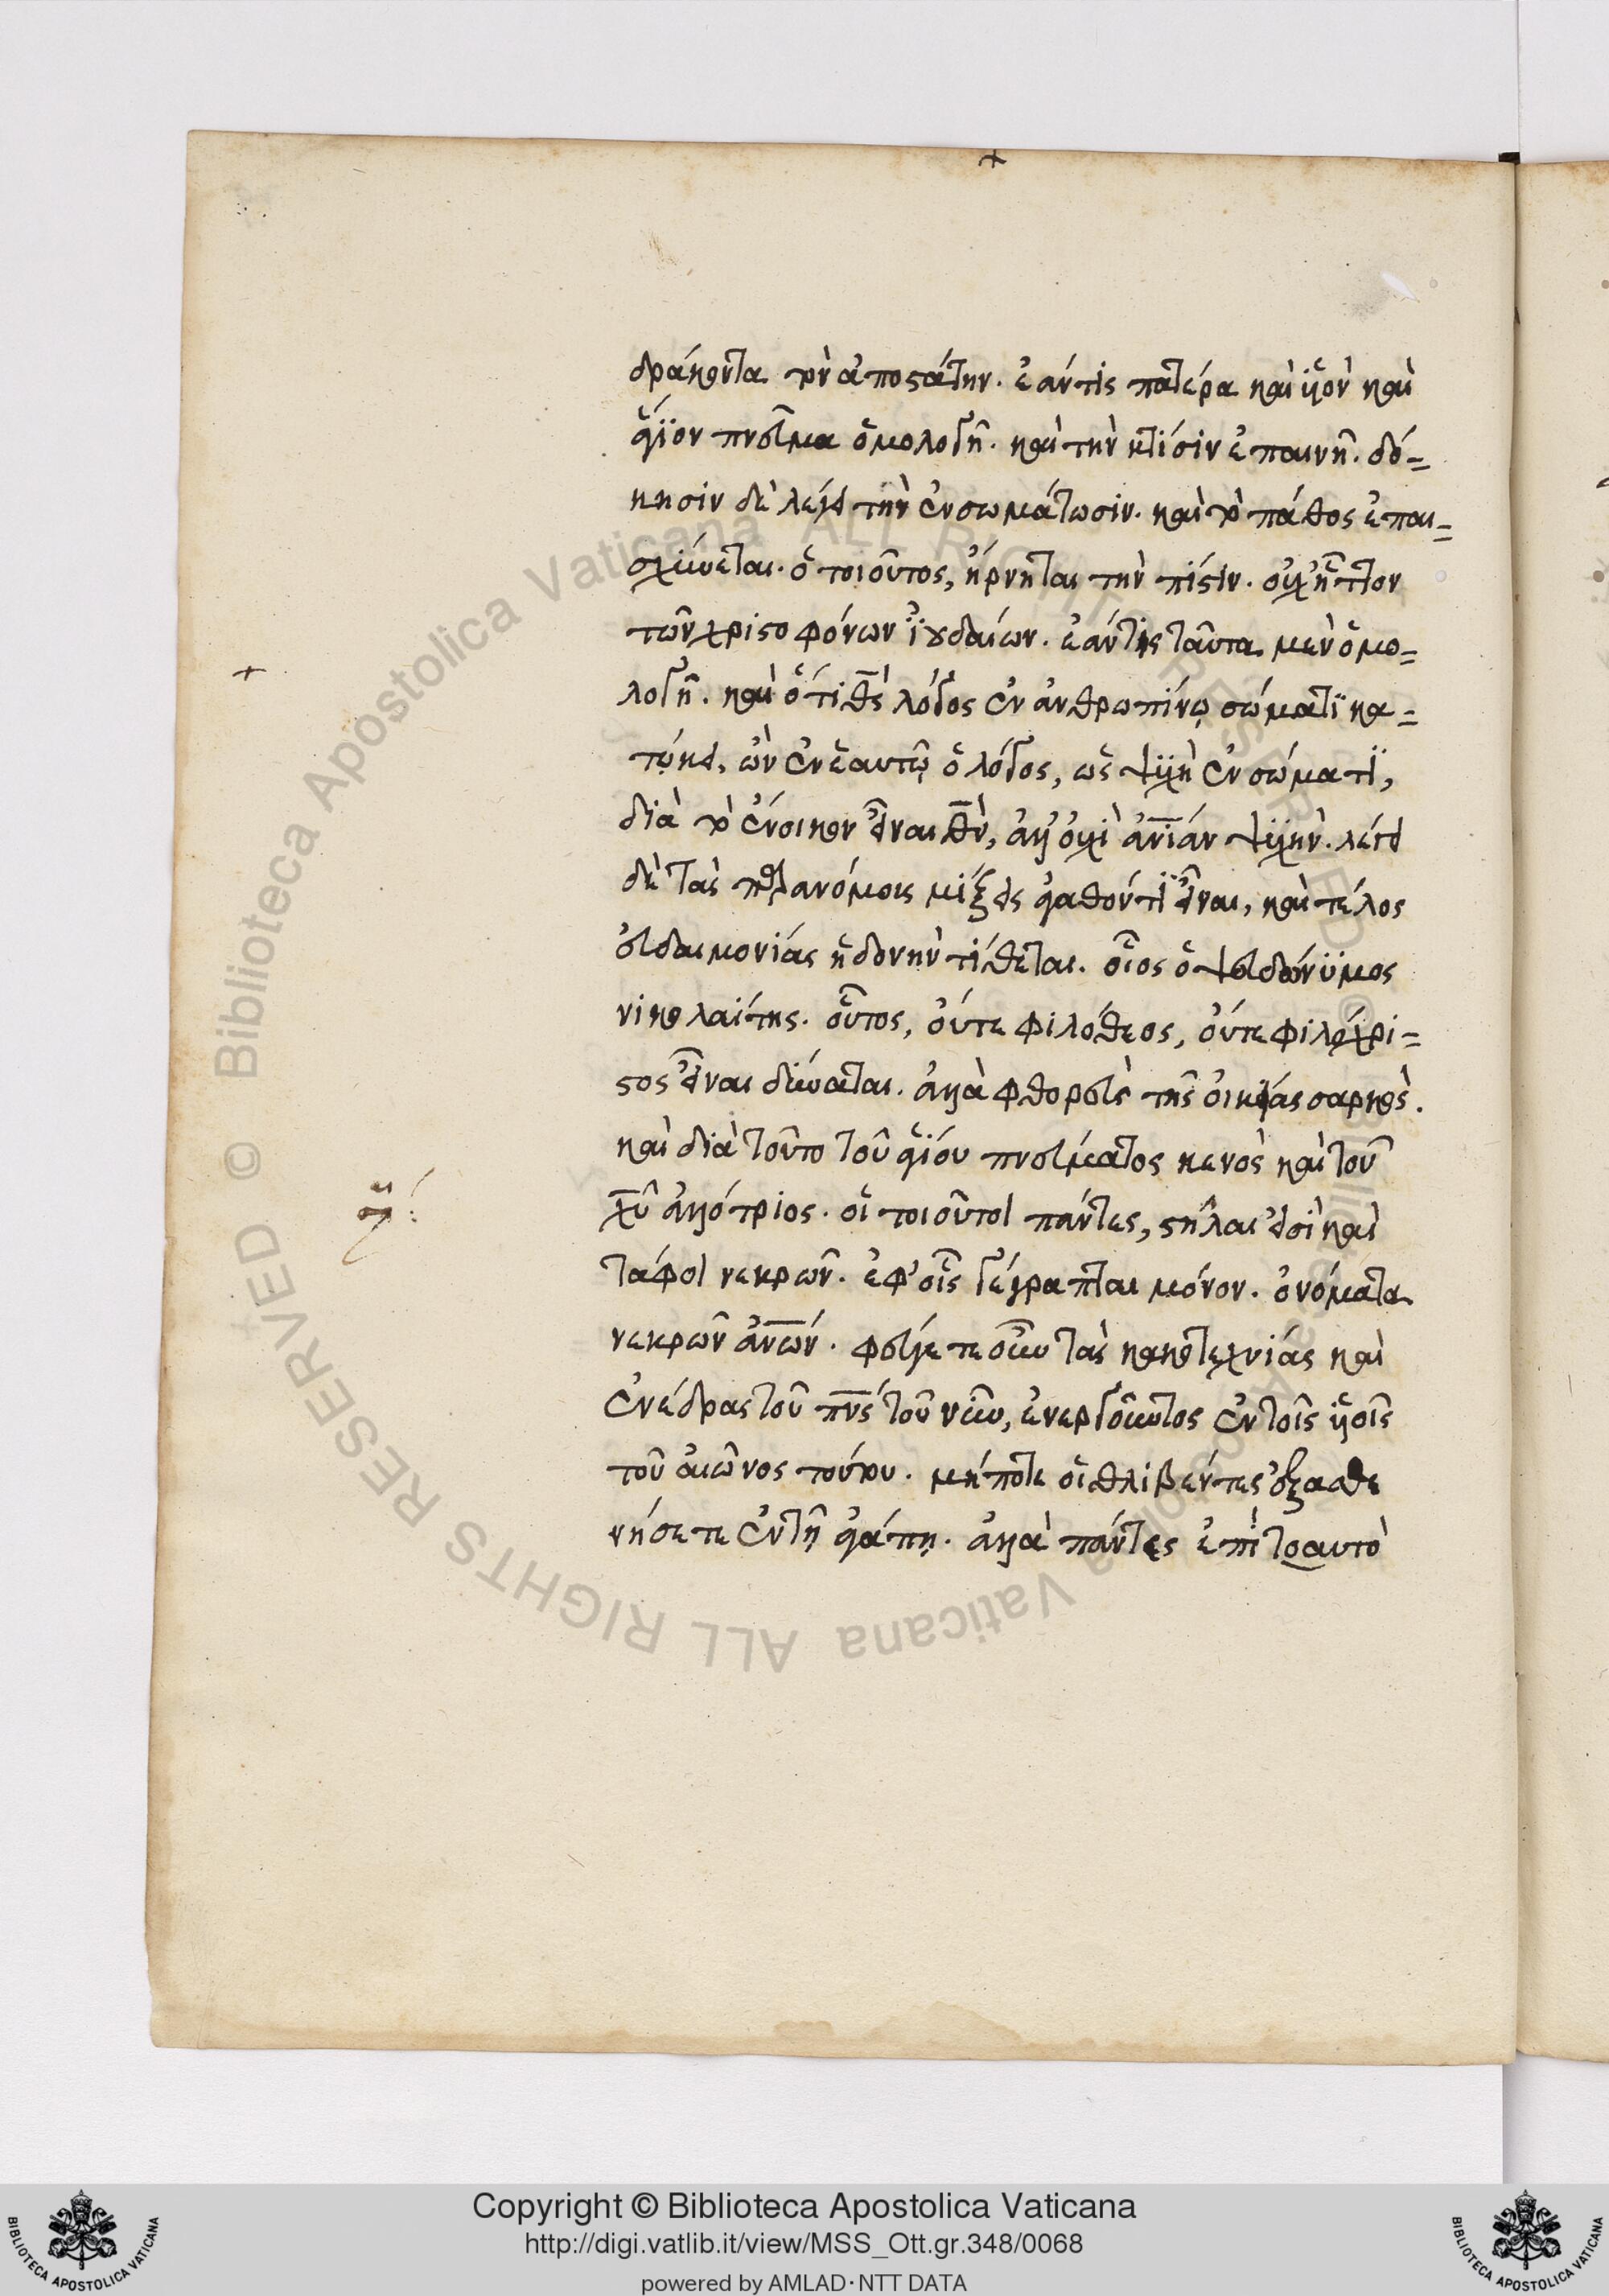 δράκοντα τὸν ἀποστάτην. ἐάν τις πατέρα καὶ υἱὸν καὶ
ἅγιον πνεῦμα ὁμολογῆ. καὶ τὴν κτίσιν ἐπαινῆ. δό=
κησιν δὲ λέγει τὴν ἐνσωμάτωσιν. καὶ τὸ πάθος ἐπαι=
σχύνεται. ὁ τοιοῦτος, ἤρνηται τὴν πίστιν. οὐχ ἧττον
τῶν χριστοφόνων ἰουδαίων. ἐάν τις ταῦτα μὲν ὁμο=
λογῆ. καὶ ὅτι θς λόγος ἐν ἀνθρωπίνῳ σώματι κα=
τῴκει, ὢν ἐν ἑαυτῷ ὁ λόγος, ὡς ψυχὴ ἐν σώματι,
διὰ τὸ ἔνοικον εἶναι θν, ἀλλ' οὐχὶ ἀνίαν ψυχὴν. λέγει
δὲ τὰς παρανόμους μίξεις ἀγαθόν τι εἶναι, καὶ τέλος
εὐδαιμονίας ἡδονὴν τίθεται. οἷος ὁ ψευδώνυμος
νικολαΐτης. οὗτος, οὔτε φιλόθεος, οὔτε φιλόχρι=
στος εἶναι δύναται. ἀλλὰ φθορεὺς τῆς οἰκείας σαρκὸς.
καὶ διὰ τοῦτο τοῦ ἁγίου πνεύματος κενὸς καὶ τοῦ
χῦ ἀλλότριος. οἱ τοιοῦτοι πάντες, στῆλαι εἰσὶ καὶ
τάφοι νεκρῶν. ἐφ' οἷς γέγραπται μόνον. ὀνόματα
νεκρῶν ἀνων. φεύγετε οὖν τὰς κακοτεχνίας καὶ
ἐνέδρας τοῦ πνς τοῦ νῦν, ἐνεργοῦντος ἐν τοῖς υἱοῖς
τοῦ αἰῶνος τούτου. μήποτε οἱ θλιβέντες ἐξασθε
νήσετε ἐν τῆ ἀγάπῃ. ἀλλὰ πάντες ἐπὶ τοαυτὸ
Copyright © Biblioteca Apostolica Vaticana
http://digi.vatlib.it/view/MSS_Ott.gr.348/0068
powered by AMLAD·NTT DATA
© Biblioteca Apostolica Vaticana ALL RIGHTS RESERVED
© Biblioteca Apostolica Vaticana ALL RIGHTS RESERVED
BIBLIOTECA APOSTOLICA VATICANA
BIBLIOTECA APOSTOLICA VATICANA